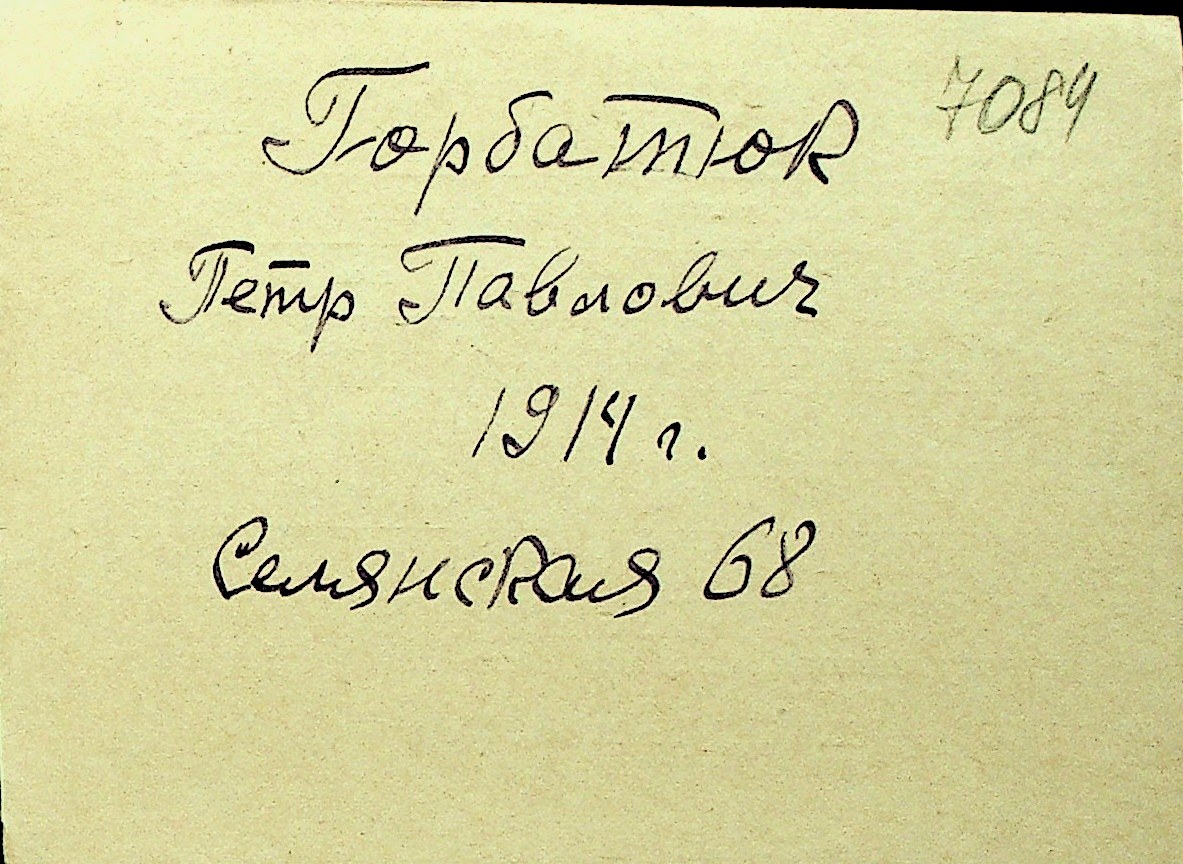 7084
Горбатюк
Петр Павлович
1914 г.
Селянская 68